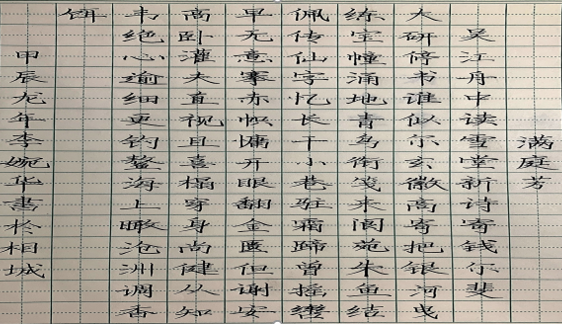 满庭芳
吴江舟中读雪堂新诗寄钱尔斐
大研修书谁似尔玄徽高寄把银河曳
练宝幢涌地青鸟衔笺来阆苑朱鱼结
佩传仙字忆长干小巷驻霜蹄曾摇辔
早无意搴赤帜慵开眼翻金匮但谢安
高卧灌夫直视且喜榻穿身尚健从知
韦绝心逾细更钓鳌海上瞰沧洲调香
饵
甲辰龙年李婉华書於相城